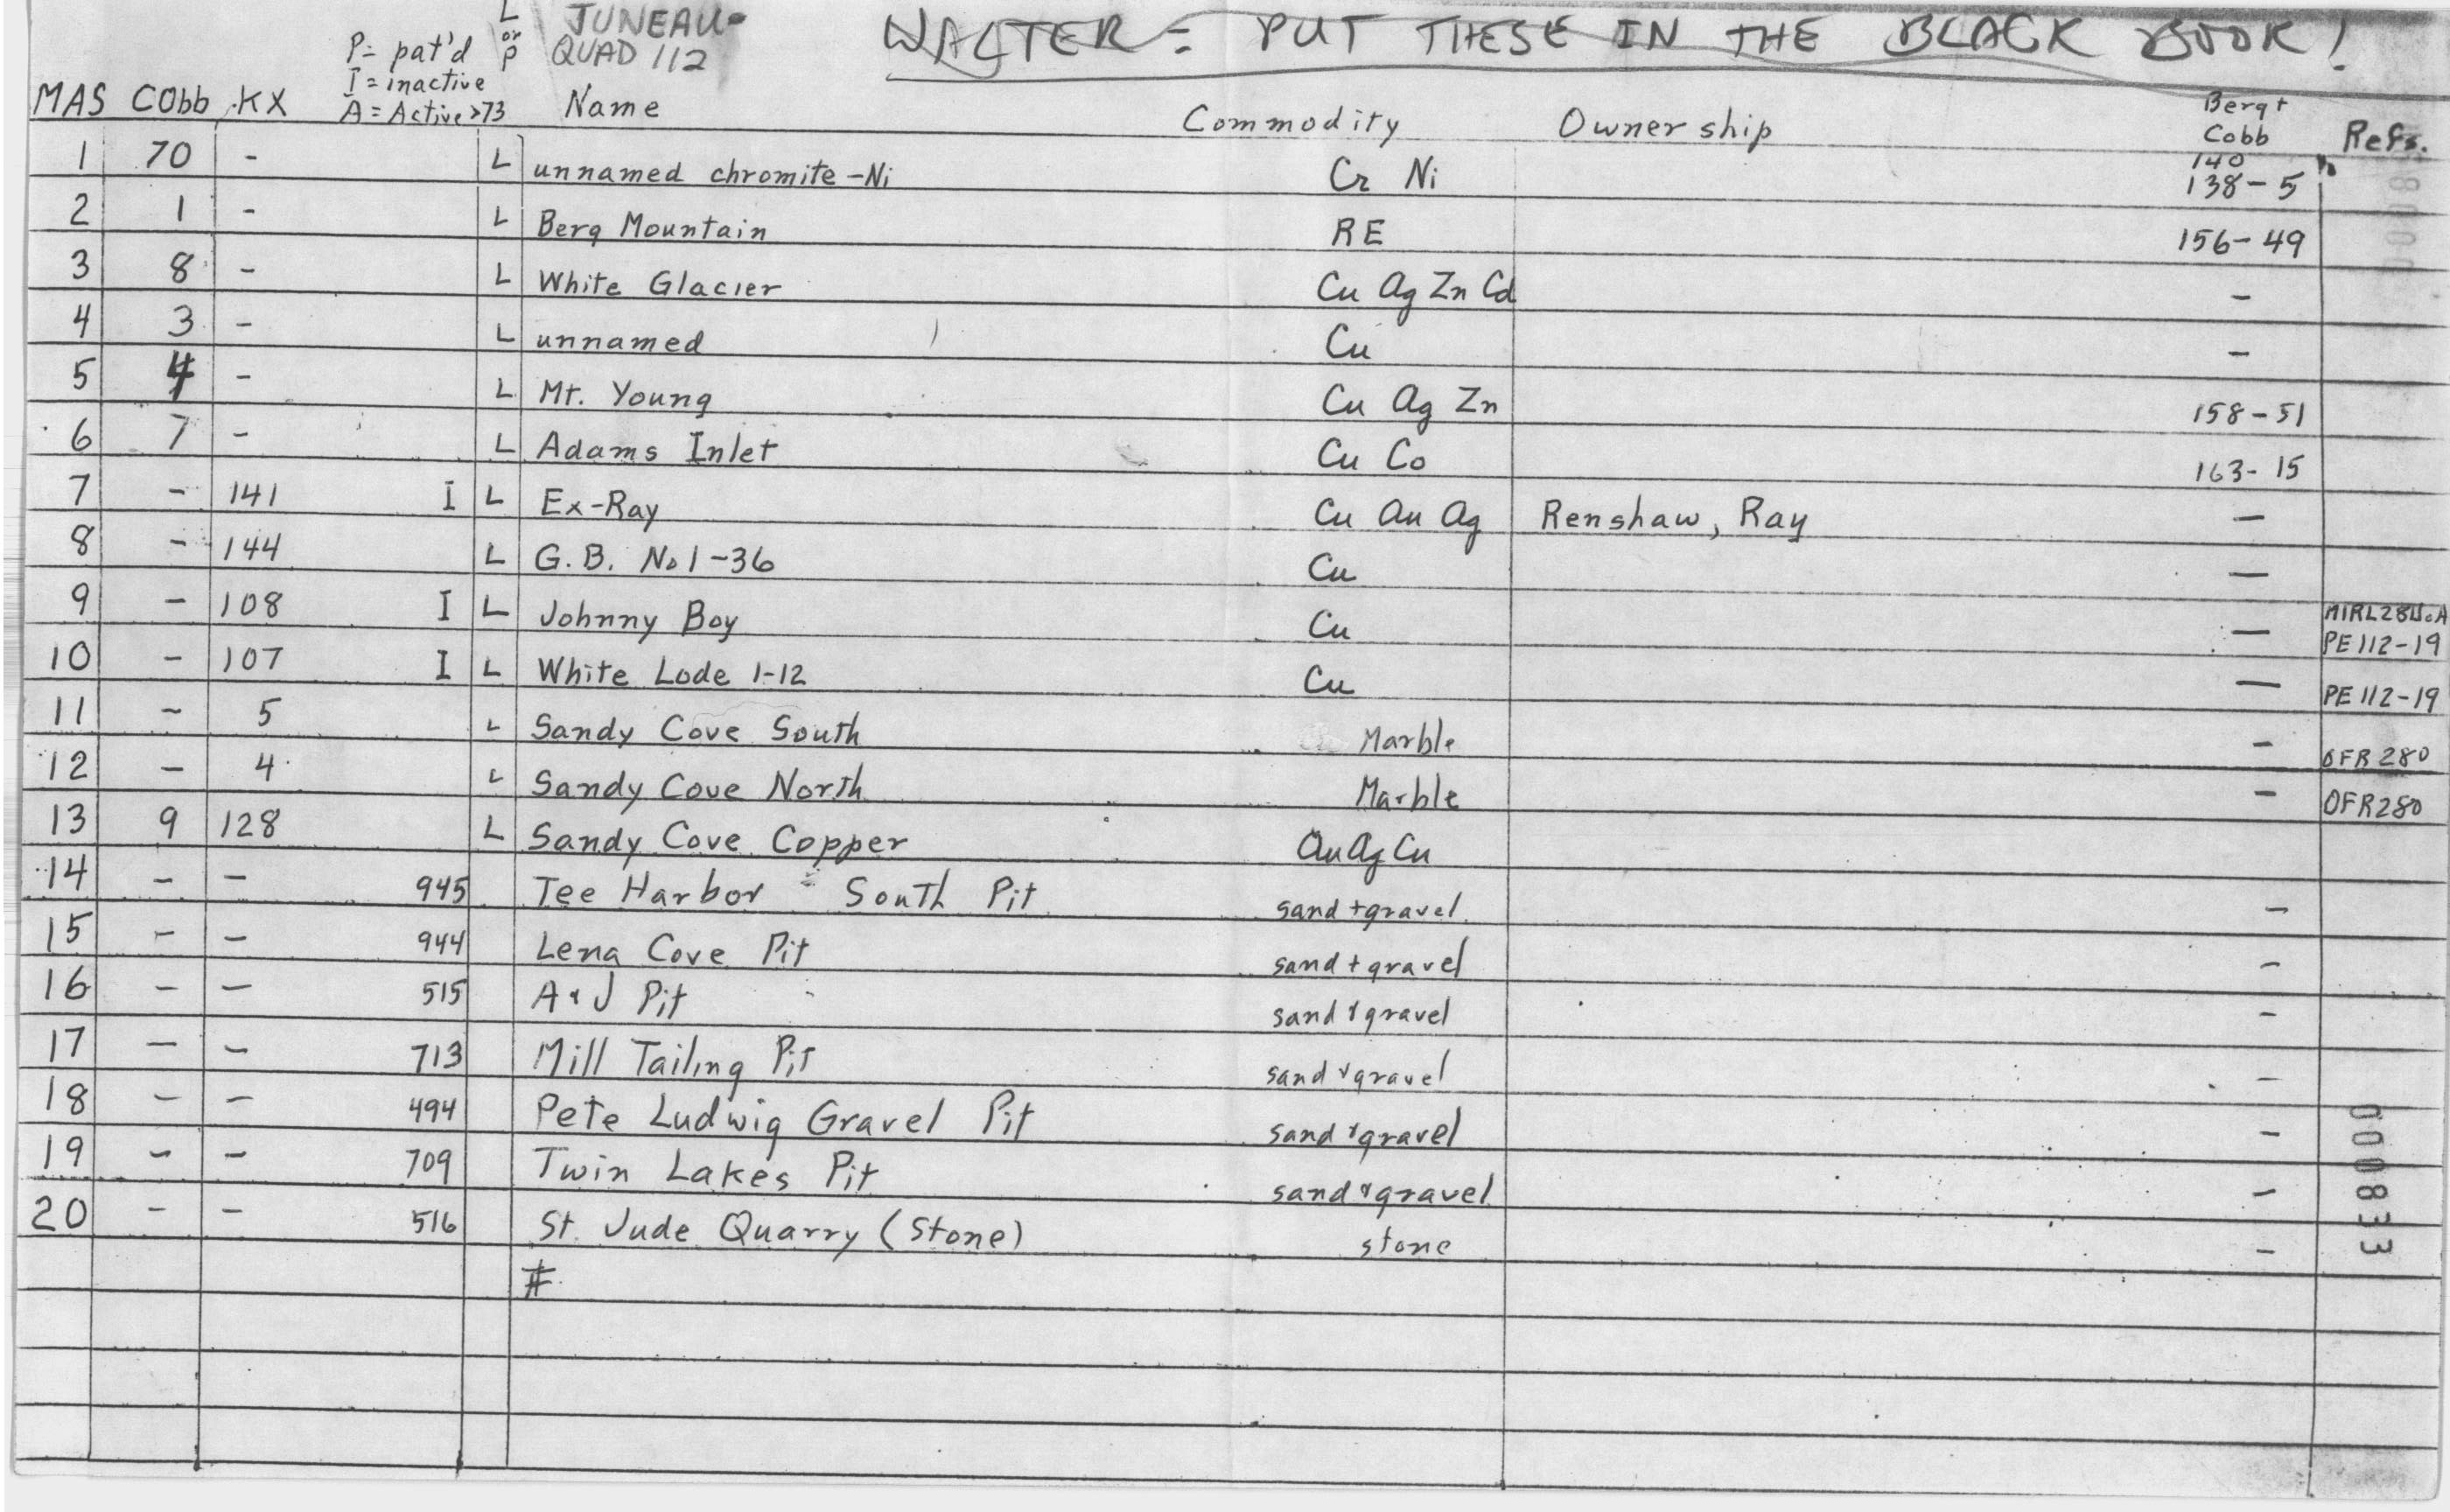 L or P JUNEAU- WALTER = PUT THESE IN THE BLACK BOOK!
P = pat'd QUAD 112
I = inactive
MAS Cobb KX A = Active >73 Name Commodity Ownership Berg + Cobb Refs.
1 70 - L unnamed chromite-Ni Cr Ni 140 138-5
2 1 - L Berg Mountain RE 156-49
3 8 - L White Glacier Cu Ag Zn Cd -
4 3 - L unnamed Cu -
5 4 - L Mt. Young Cu Ag Zn 158-51
6 7 - L Adams Inlet Cu Co 163-15
7 - 141 I L Ex-Ray Cu Au Ag Renshaw, Ray -
8 - 144 L G.B. No 1-36 Cu -
9 - 108 I L Johnny Boy Cu - PE 112-19
10 - 107 I L White Lode 1-12 Cu - PE 112-19
11 - 5 L Sandy Cove South Marble - OFR 280
12 - 4 L Sandy Cove North Marble - OFR 280
13 9 128 L Sandy Cove Copper Au Ag Cu
14 - - 945 Tee Harbor South Pit sand + gravel -
15 - - 944 Lena Cove Pit sand + gravel -
16 - - 515 A & J Pit sand & gravel -
17 - - 713 Mill Tailing Pit sand & gravel -
18 - - 494 Pete Ludwig Gravel Pit sand & gravel -
19 - - 709 Twin Lakes Pit sand & gravel -
20 - - 516 St. Jude Quarry (Stone) stone -
000833